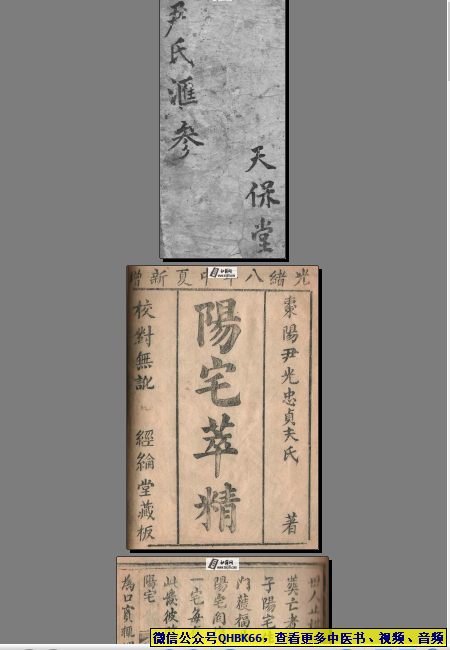 尹氏滙參
天保堂
光緒八年中夏新增
棗陽尹光忠貞夫氏 著
陽宅萃精
校對無訛 經綸堂藏板
葬亡者
子陽宅
陽宅
一宅每
此 彼
陽宅
為口實
微信公众号QHBK66，查看更多中医书、视频、音频